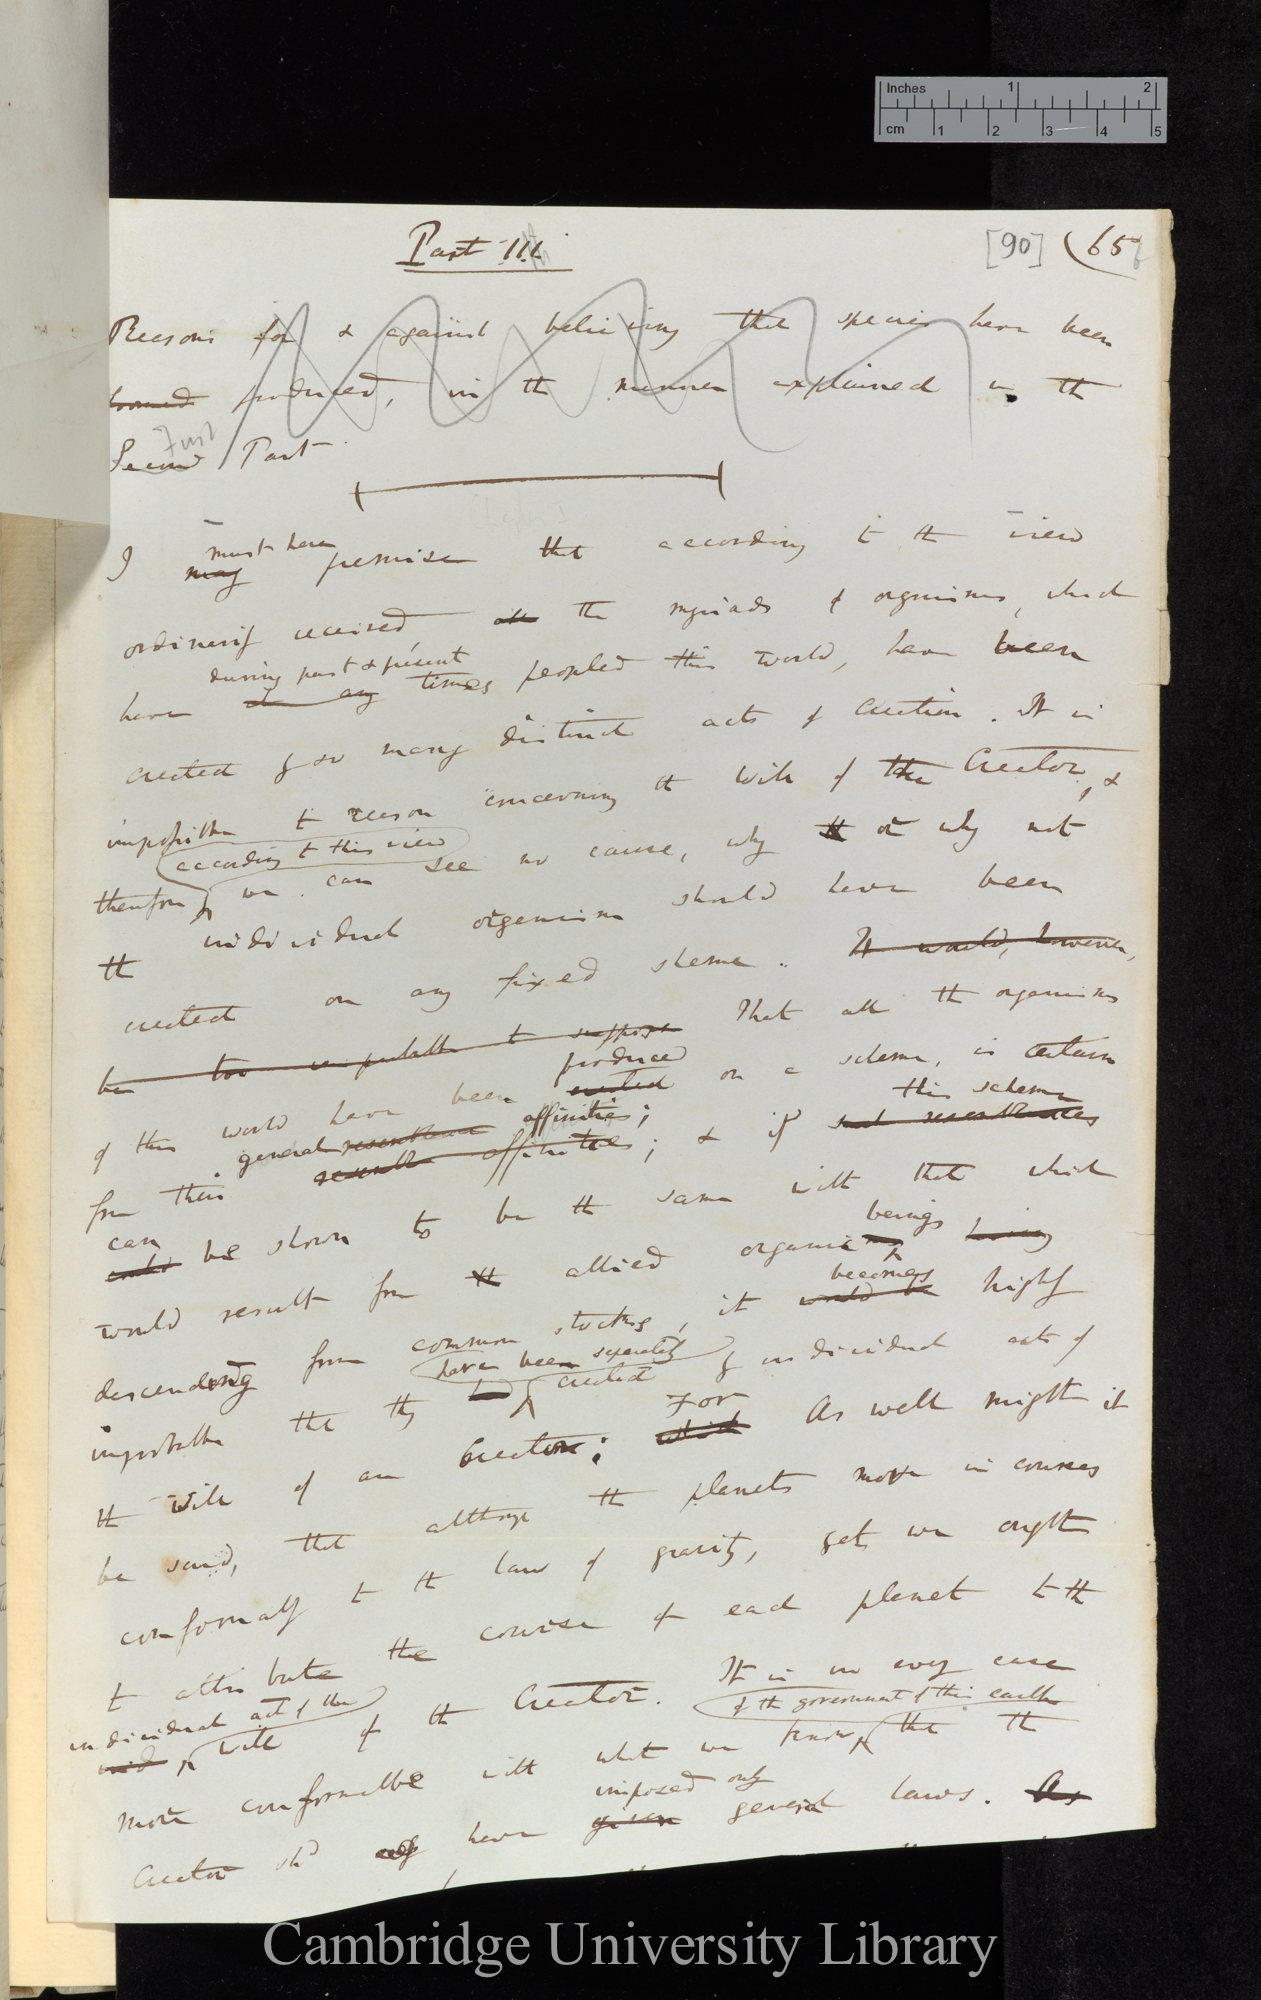 Inches 1 2
cm 1 2 3 4 5
Part III
[90] (65
Reasons for & against believing that species have been
formed produced, in the manner explained in the
First
Second Part
Chapter I
must here
I may premise that according to the view
ordinarily received, all the myriads of organisms, which
during past & present
have at any times peopled this world, have been
created by so many distinct acts of creation. It is
impossible to reason concerning the will of the Creator, &
according to this view
therefore we can see no cause, why or why not
the individual organism should have been
created on any fixed scheme. It would, however,
be too improbable to suppose That all the organisms
produced
of this world have been created on a scheme, is certain
general resemblance affinities; this scheme
from their affinities; & if such resemblances
can
could be shown to be the same with that which
beings
would result from the allied organic having
becomes
descending from common stocks, it would be highly
have been separately
improbable that they created by individual acts of
For
the will of an Creator; which As well might it
be said, that although the planets move in courses
conformably to the law of gravity, yet we ought
to attribute the course of each planet to the
individual act of the
will of the Creator. It is in every case
of the government of this earth
more conformable with what we know, that the
imposed only
Creator shd only have given general laws. As
Cambridge University Library